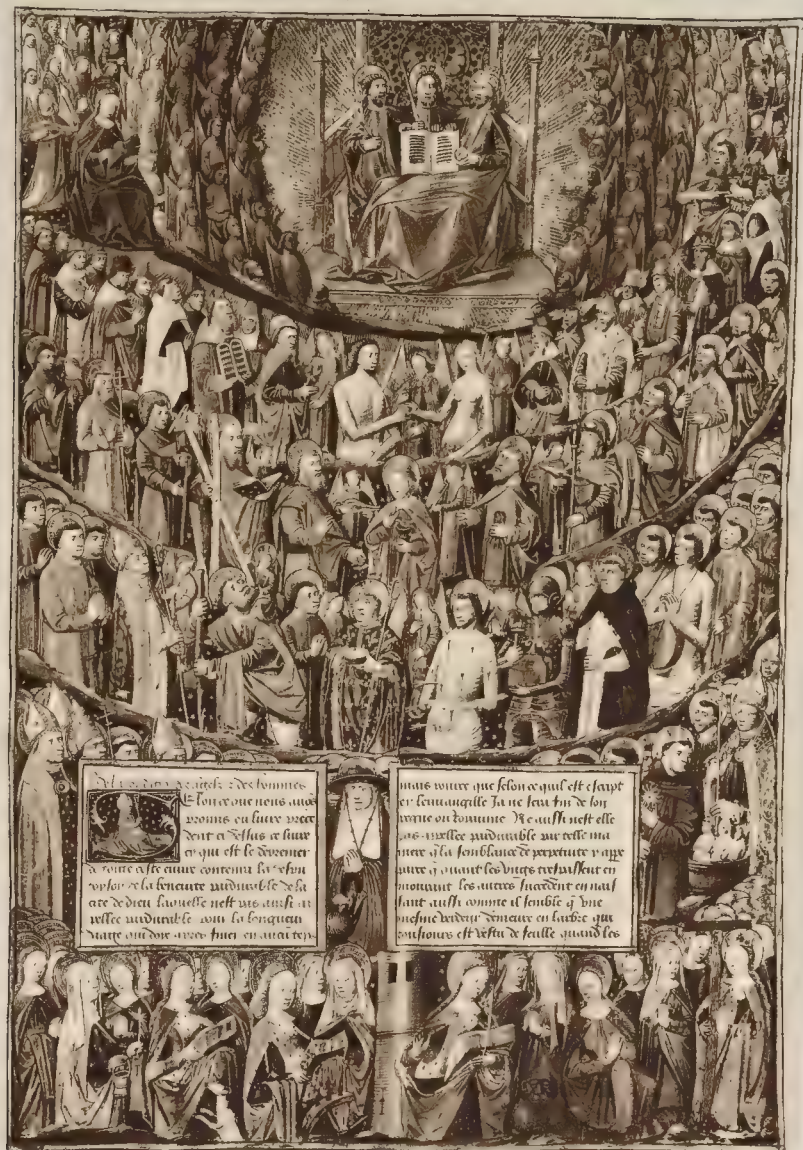 des hommes
Selon ce que nous avons
promis ou livre prece
dent ci dessus ce livre
cy qui est le derrenier
de toute ceste euvre contenra la
de la beneurte pardurable de la
cite de dieu laquelle nest pas ainsi ap
pellee pardurable pour la longueur
daage qui doie apres finer en aucun temps
mais pource que selon ce quil est escript
en leuuangille Ja ne sera fin de son
regne ou Ne aussi nest elle
pas appellee pardurable par telle ma
niere q la semblance de perpetuite y appe
quant les trespassent en
mourant les autres succedent en nais
sant aussi comme il semble q vne
mesme verdeur demeure en larbre qui
tousiours est vestu de feulle quand les